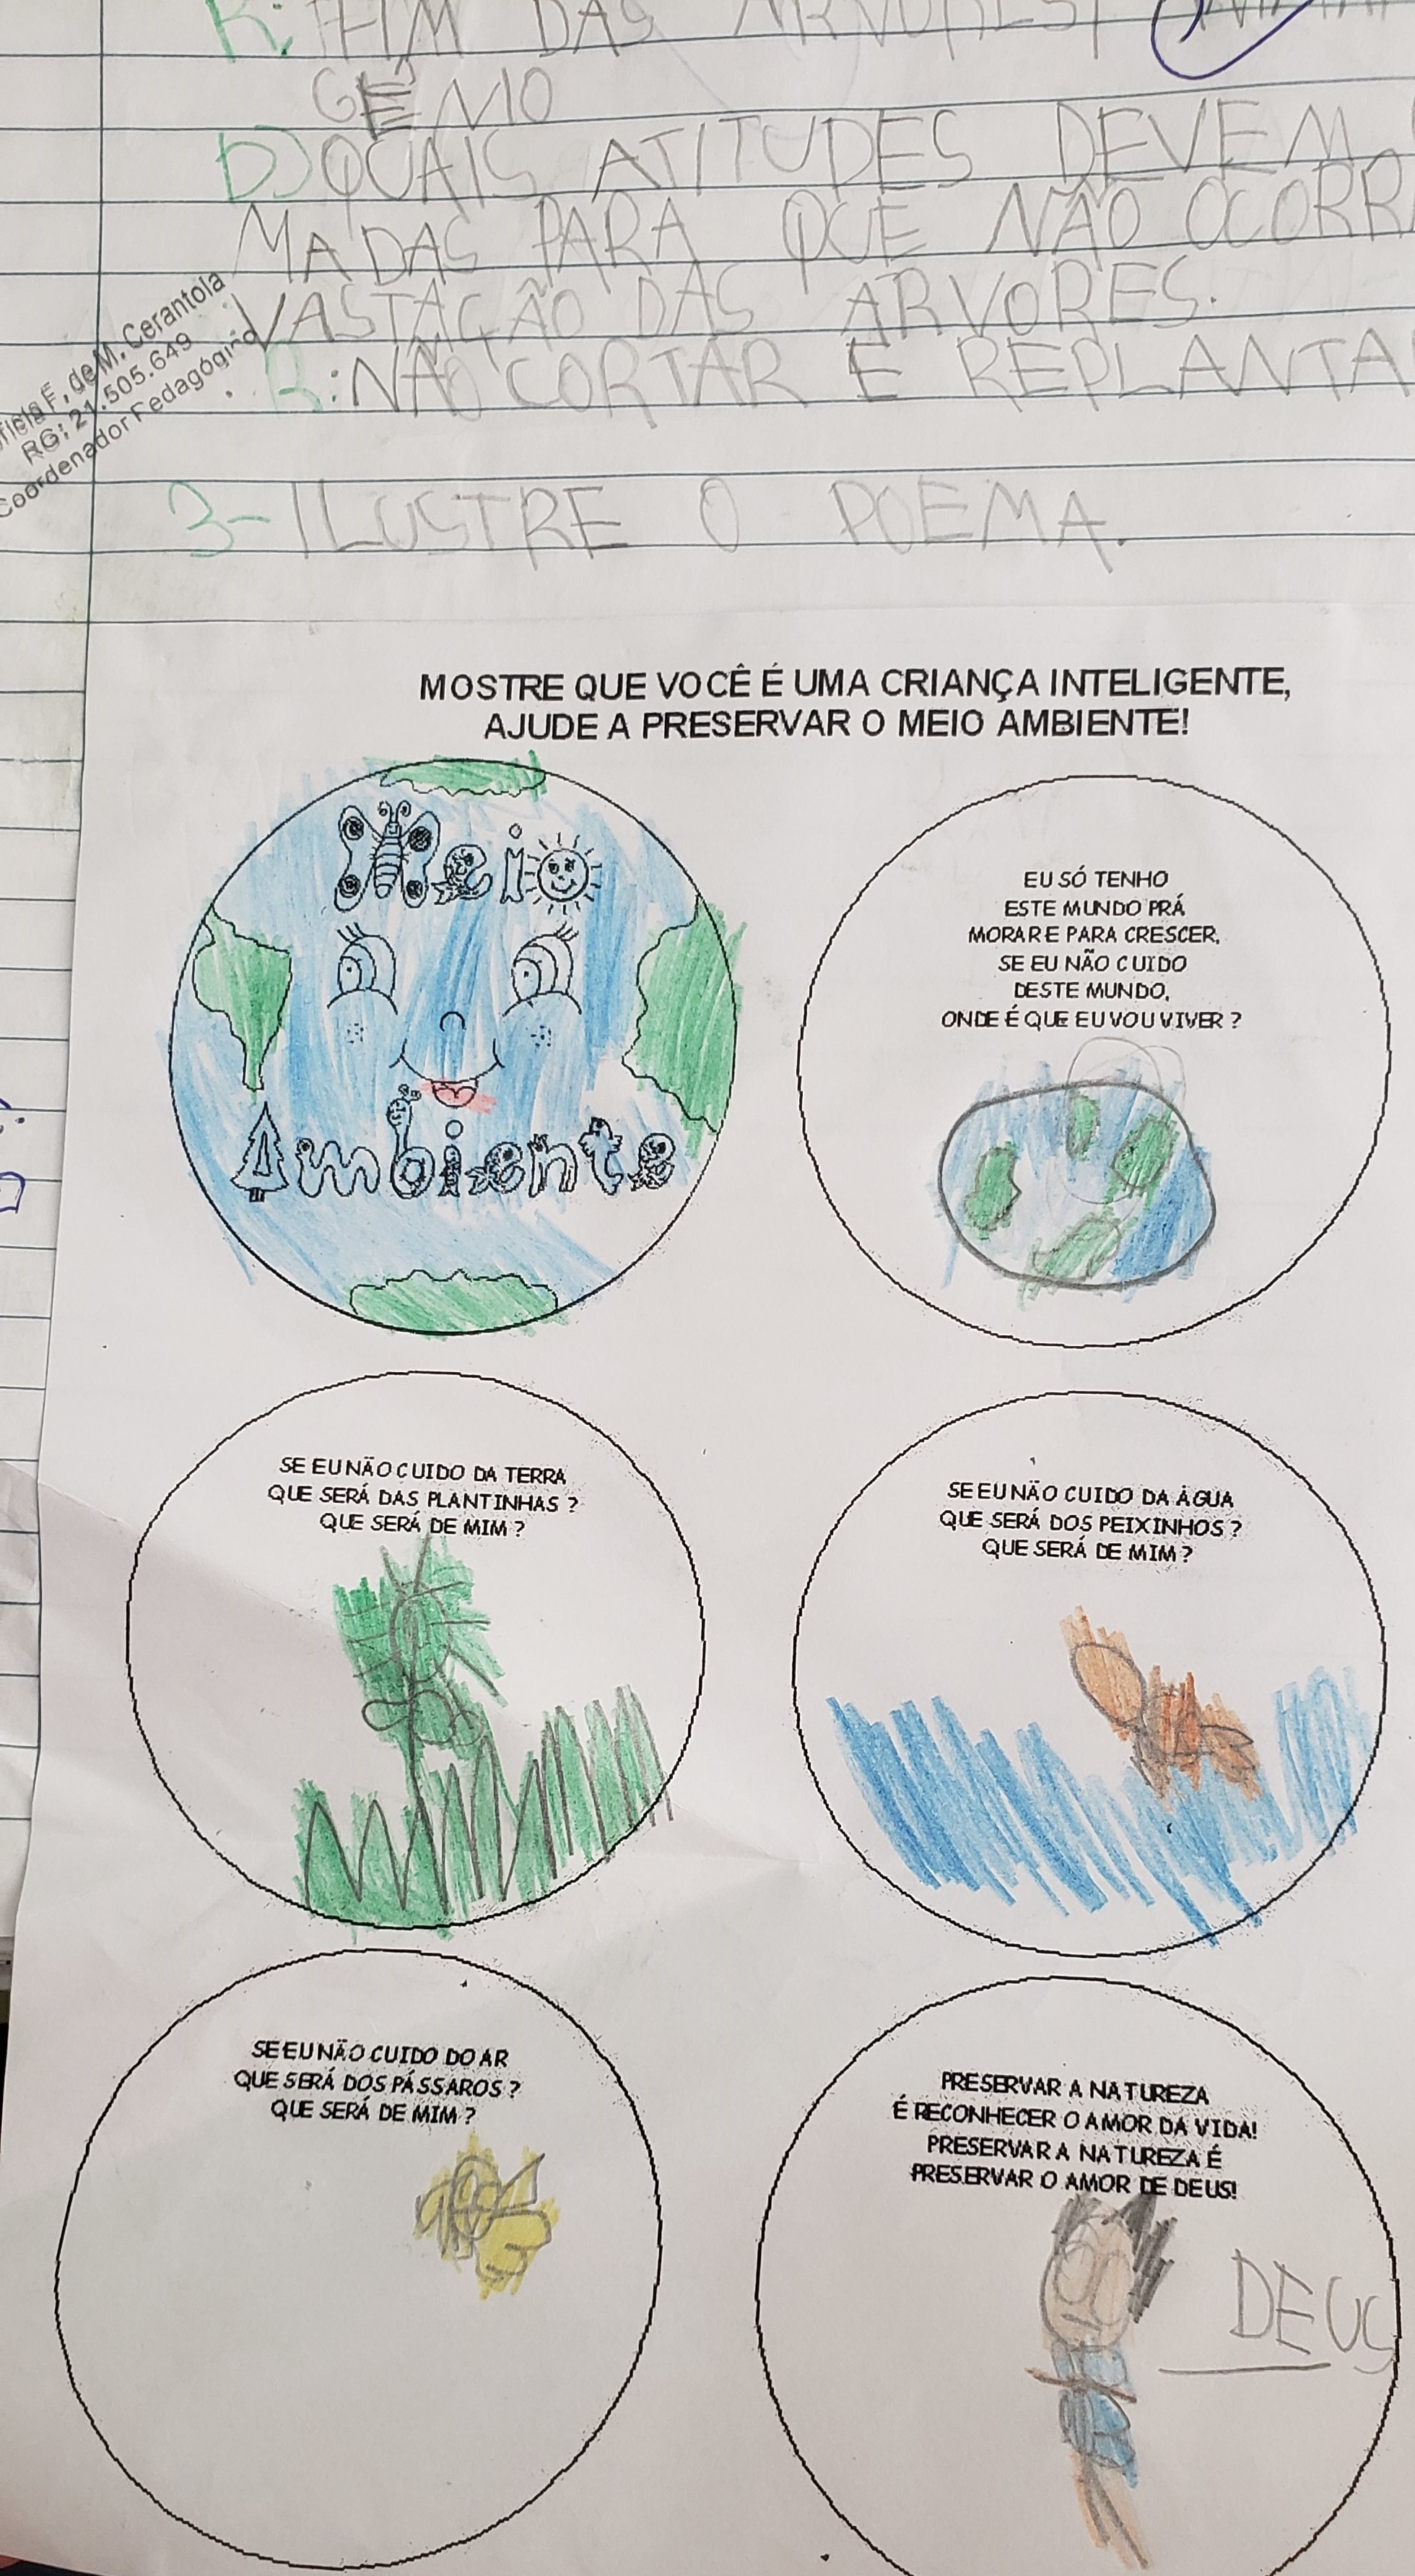 R: FIM DAS ARVORES,
GÊNIO
D) QUAIS ATITUDES DEVEM
MADAS PARA QUE NÃO OCORRA
VASTAÇÃO DAS ARVORES.
R: NÃO CORTAR E REPLANTA
F. de M. Cerantola
RG: 21.505.649
Coordenador Pedagógico
3- ILUSTRE O POEMA.
MOSTRE QUE VOCÊ É UMA CRIANÇA INTELIGENTE,
AJUDE A PRESERVAR O MEIO AMBIENTE!
Meio
Ambiente
EU SÓ TENHO
ESTE MUNDO PRÁ
MORAR E PARA CRESCER,
SE EU NÃO CUIDO
DESTE MUNDO,
ONDE É QUE EU VOU VIVER ?
SE EU NÃO CUIDO DA TERRA
QUE SERÁ DAS PLANTINHAS ?
QUE SERÁ DE MIM ?
SE EU NÃO CUIDO DA ÁGUA
QUE SERÁ DOS PEIXINHOS ?
QUE SERÁ DE MIM ?
SE EU NÃO CUIDO DO AR
QUE SERÁ DOS PÁSSAROS ?
QUE SERÁ DE MIM ?
PRESERVAR A NATUREZA
É RECONHECER O AMOR DA VIDA!
PRESERVAR A NATUREZA É
PRESERVAR O AMOR DE DEUS!
DEUS